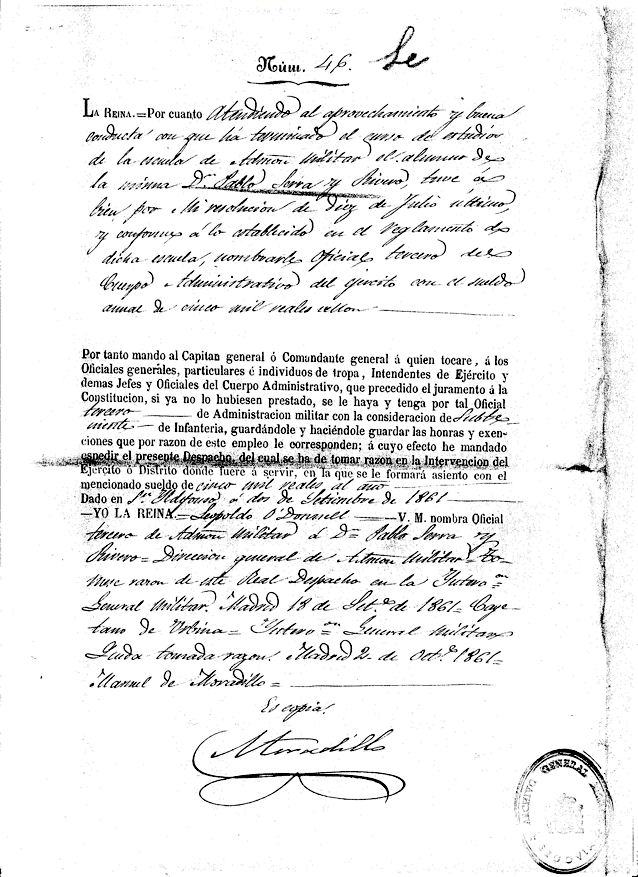 Núm. 46. Se
LA REINA.=Por cuanto Atendiendo al aprovechamiento y buena
conducta con que ha terminado el curso de estudios
de la escuela de Admon Militar el alumno de
la misma Dn. Pablo Serra y Rivero tuve á
bien por Mi resolucion de diez de Julio último,
y conforme á lo establecido en el reglamento de
dicha escuela, nombrarle Oficial tercero del
Cuerpo Administrativo del ejército con el sueldo
anual de cinco mil reales vellon
Por tanto mando al Capitan general ó Comandante general á quien tocare, á los
Oficiales generales, particulares é individuos de tropa, Intendentes de Ejército y
demas Jefes y Oficiales del Cuerpo Administrativo, que precedido el juramento á la
Constitucion, si ya no lo hubiesen prestado, se le haya y tenga por tal Oficial
tercero de Administracion militar con la consideracion de Subte
niente de Infanteria, guardándole y haciéndole guardar las honras y exen-
ciones que por razon de este empleo le corresponden; á cuyo efecto he mandado
espedir el presente Despacho, del cual se ha de tomar razon en la Intervencion del
Ejército ó Distrito donde fuere á servir, en la que se le formará asiento con el
mencionado sueldo de cinco mil reales al año
Dado en Sn. Ildefonso á dos de Setiembre de 1861
—YO LA REINA.—Leopoldo O'Donnell — V. M. nombra Oficial
tercero de Admon Militar á Dn Pablo Serra y
Rivero = Direccion general de Admon Militar = To-
mese razon de este Real Despacho en la Interv.on
General Militar. Madrid 18 de Set.e de 1861 = Caye-
tano de Urbina = Interv.on General Militar
Queda tomada razon. Madrid 2 de Oct.e 1861 =
Manuel de Moradillo =
Es copia.
Moradillo
ARCHIVO GENERAL MILITAR SEGOVIA